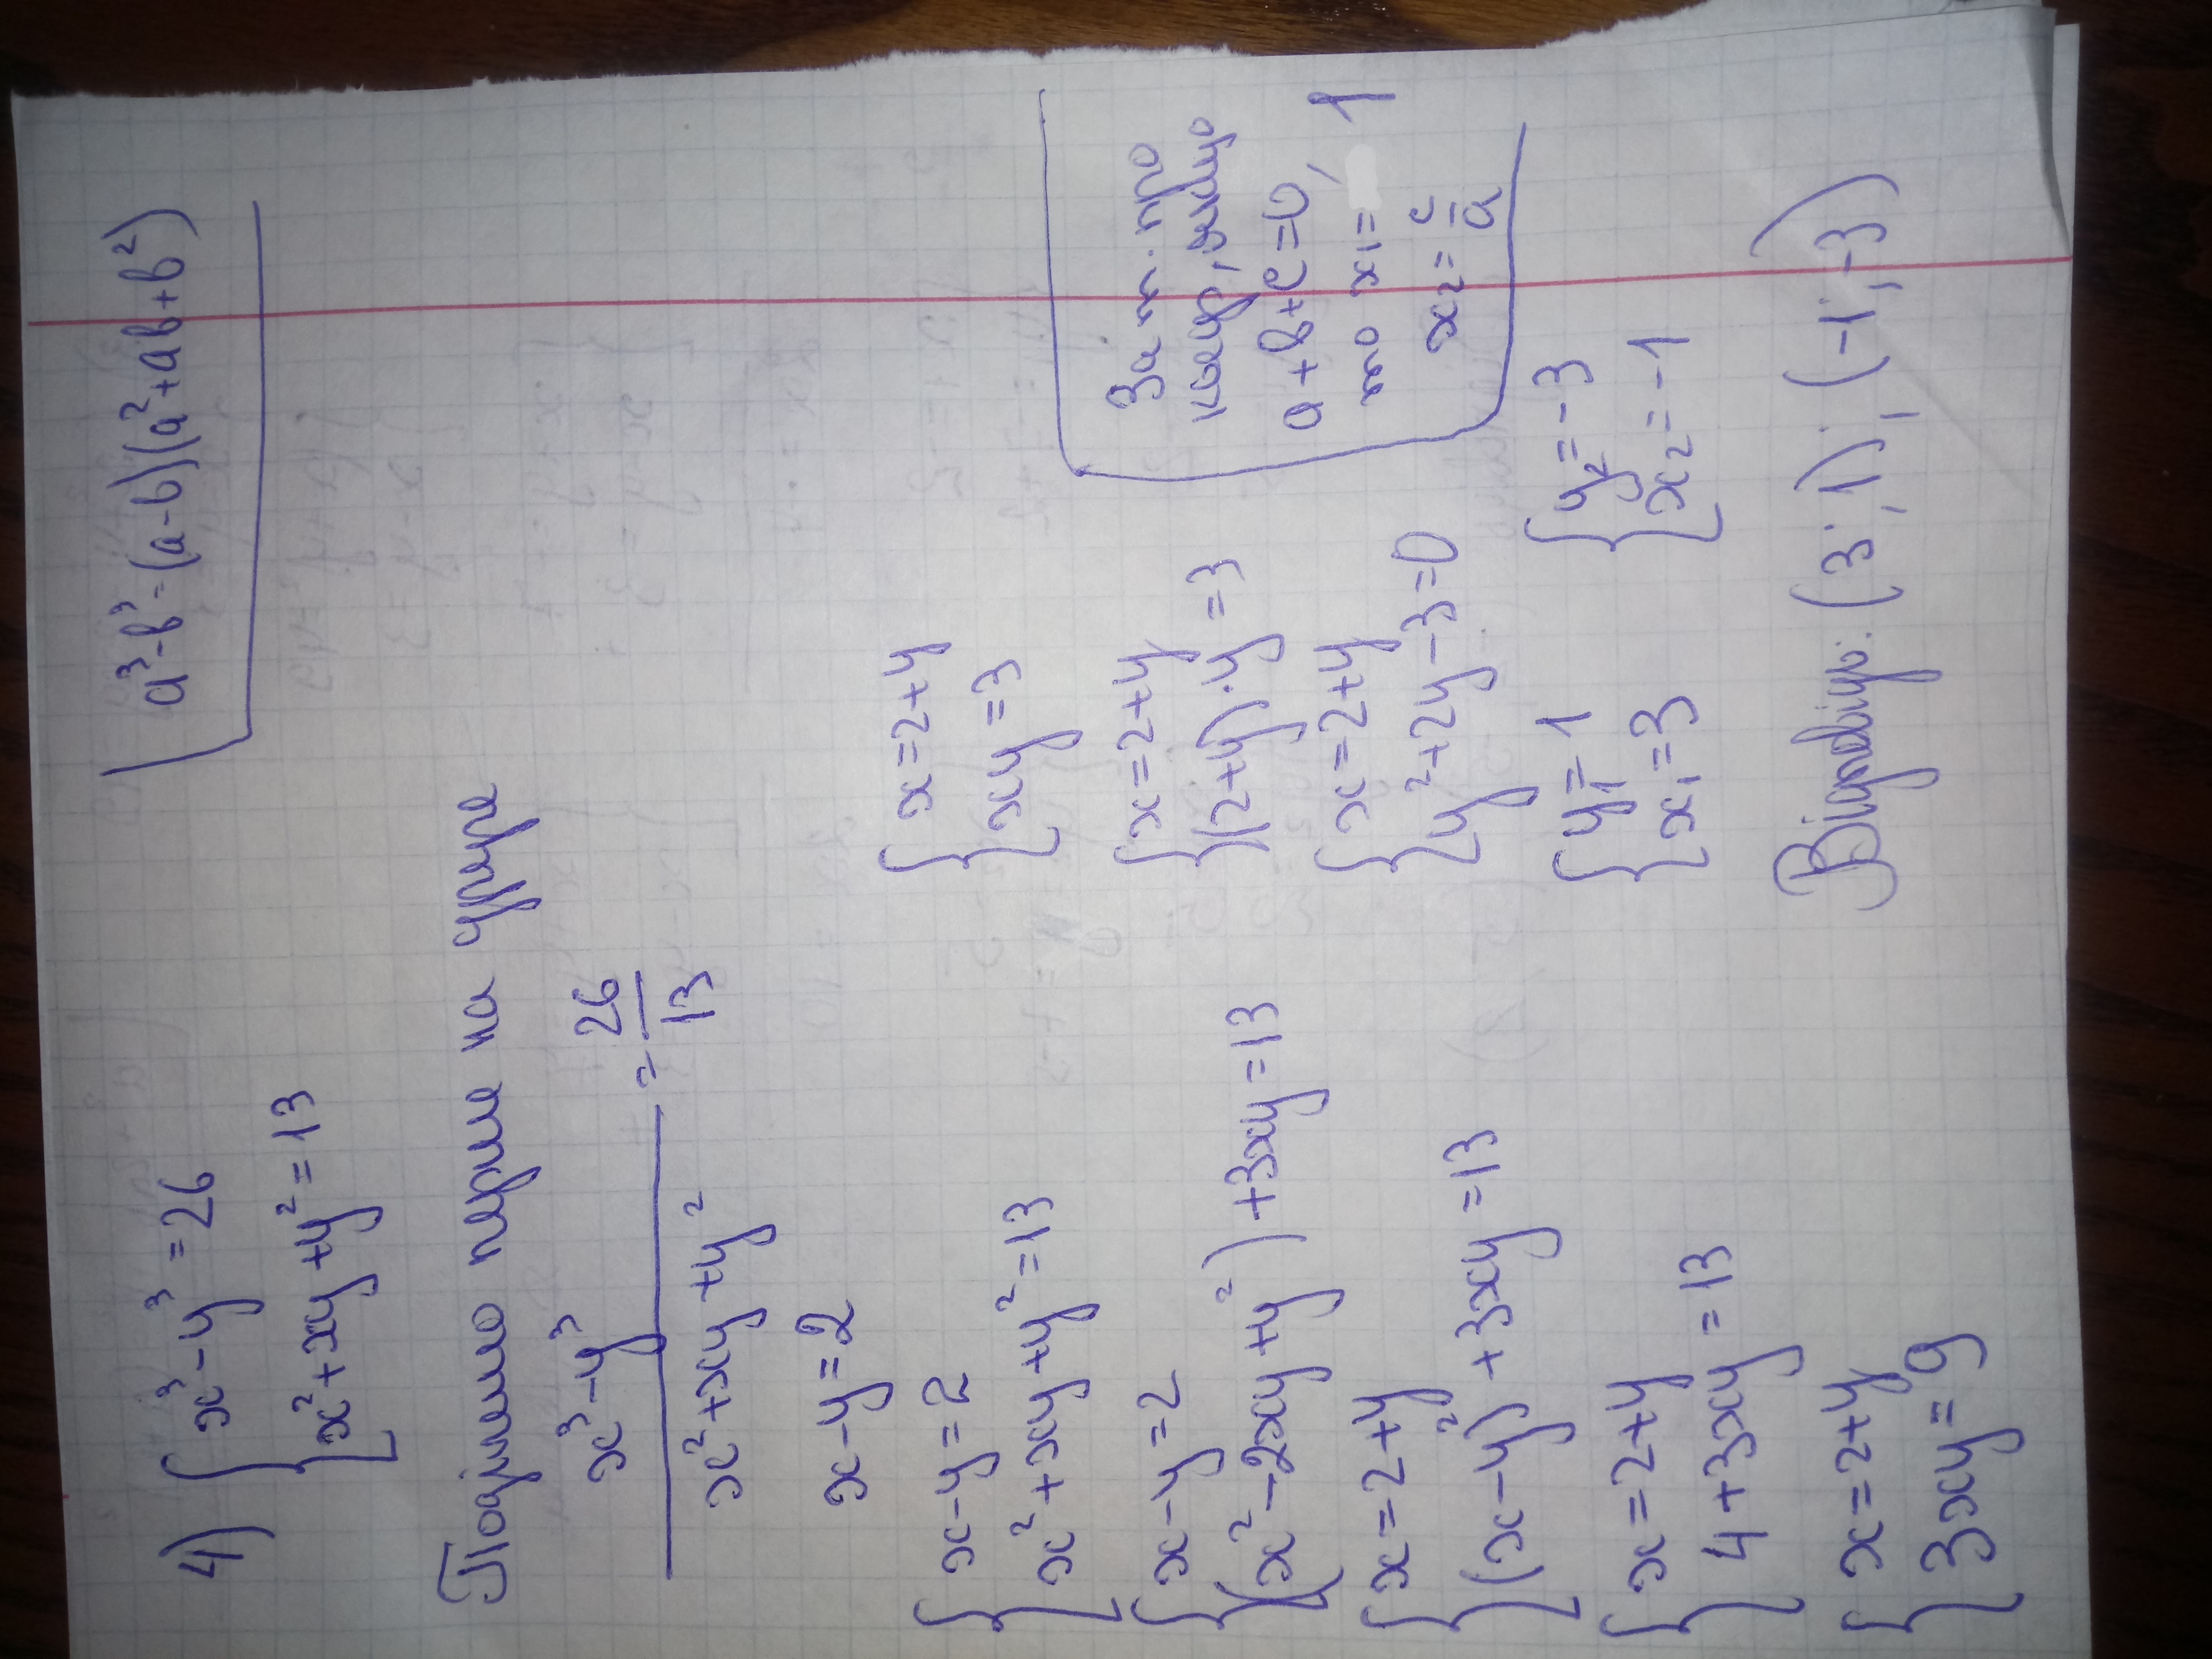 4) { x³-y³=26
{ x²+xy+y²=13
a³-b³=(a-b)(a²+ab+b²)
Поділимо перше на друге
x³-y³ / x²+xy+y² = 26/13
x-y=2
{ x-y=2
{ x²+xy+y²=13
{ x-y=2
{ (x²-2xy+y²)+3xy=13
{ x=2+y
{ (x-y)²+3xy=13
{ x=2+y
{ 4+3xy=13
{ x=2+y
{ 3xy=9
{ x=2+y
{ xy=3
{ x=2+y
{ (2+y)·y=3
{ x=2+y
{ y²+2y-3=0
За т. про
коеф, якщо
a+b+c=0,
то x₁= 1
x₂=c/a
{ y₁=1
{ x₁=3
{ y₂=-3
{ x₂=-1
Відповідь: (3;1); (-1;-3)